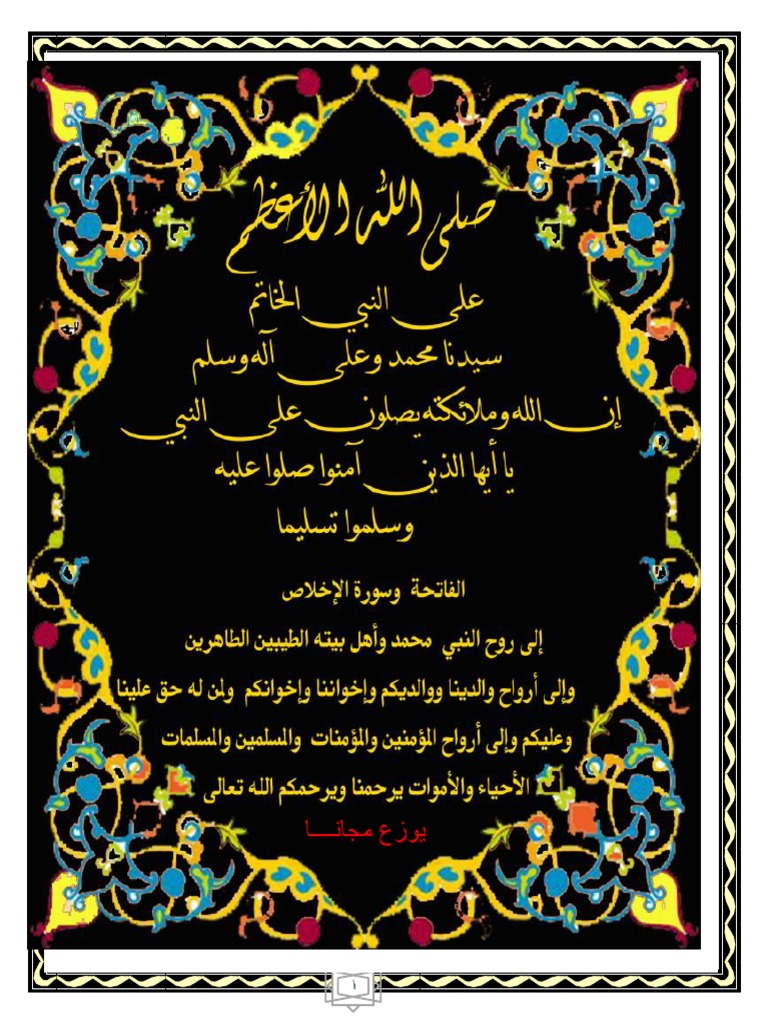 صلى الله الأعظم
على النبي الخاتم
سيدنا محمد وعلى آله وسلم
إن الله وملائكته يصلون على النبي
يا أيها الذين آمنوا صلوا عليه
وسلموا تسليما
الفاتحة وسورة الإخلاص
إلى روح النبي محمد وأهل بيته الطيبين الطاهرين
وإلى أرواح والدينا ووالديكم وإخواننا وإخوانكم ولمن له حق علينا
وعليكم وإلى أرواح المؤمنين والمؤمنات والمسلمين والمسلمات
الأحياء والأموات يرحمنا ويرحمكم الله تعالى
يوزع مجانـــا
١